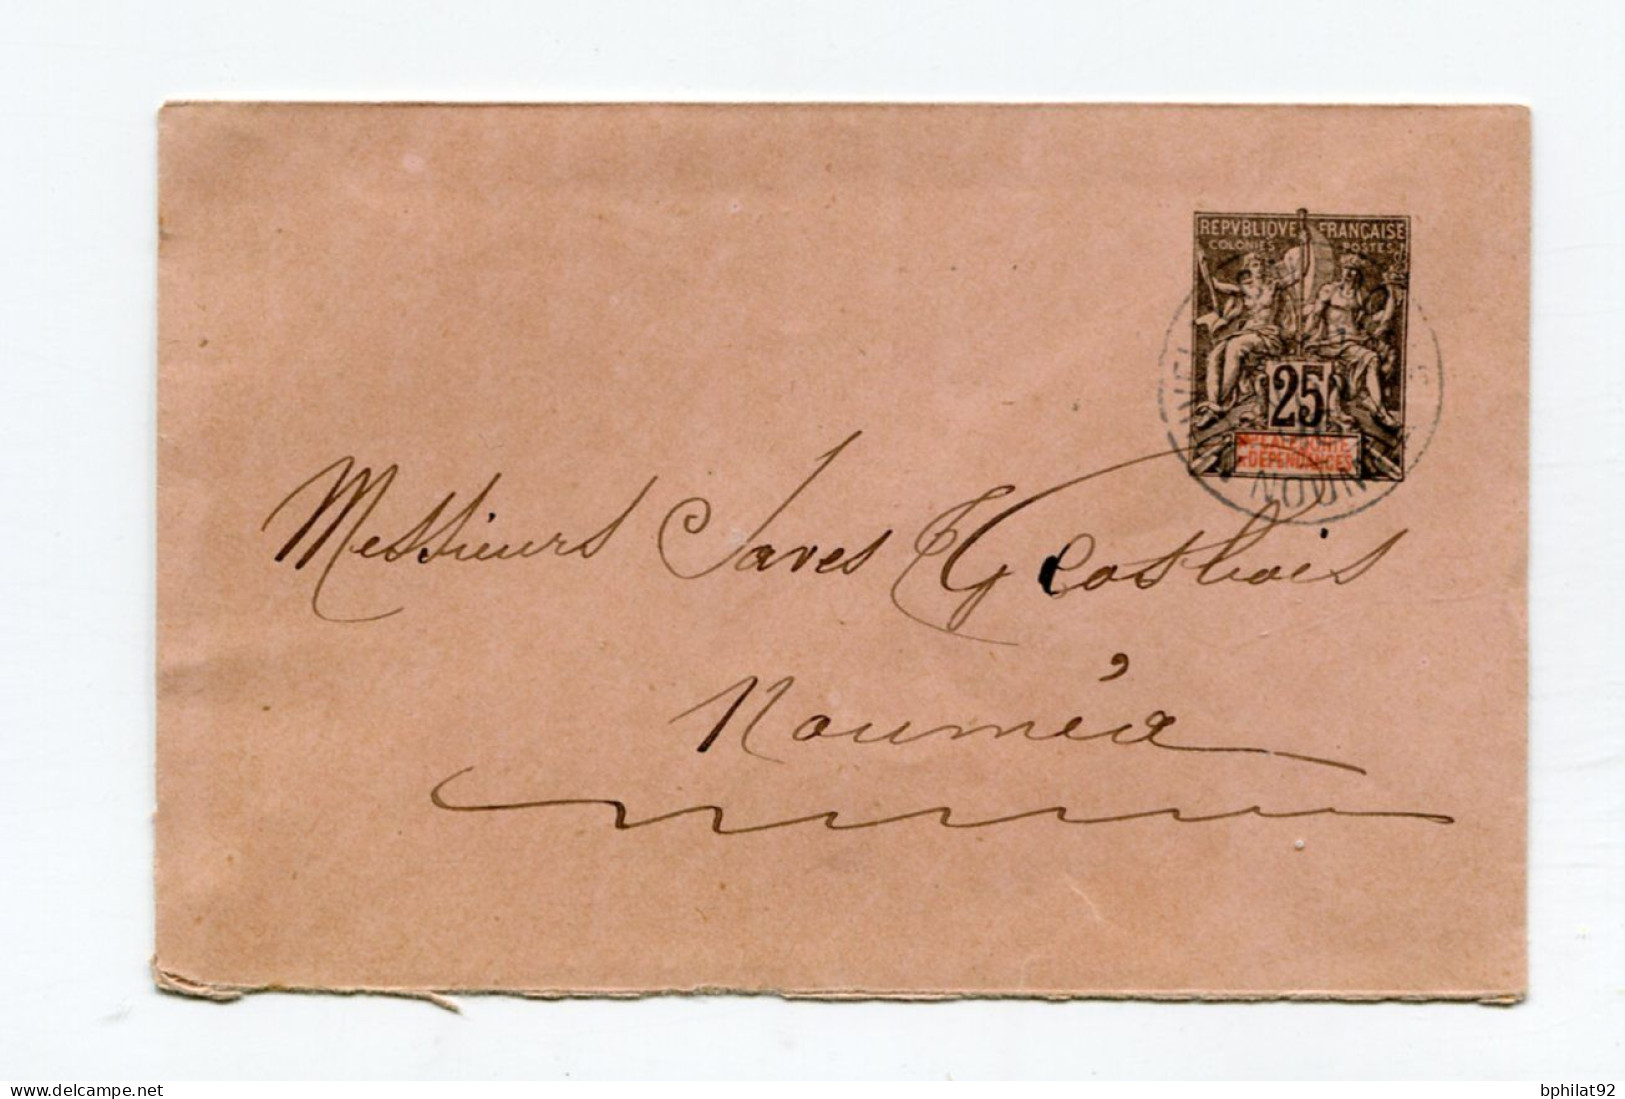 REPVBLIQVE FRANÇAISE
COLONIES POSTES
25
Nlle CALÉDONIE
et DÉPENDANCES
NOUM
Messieurs Saves &
Nouméa
www.delcampe.net bphilat92